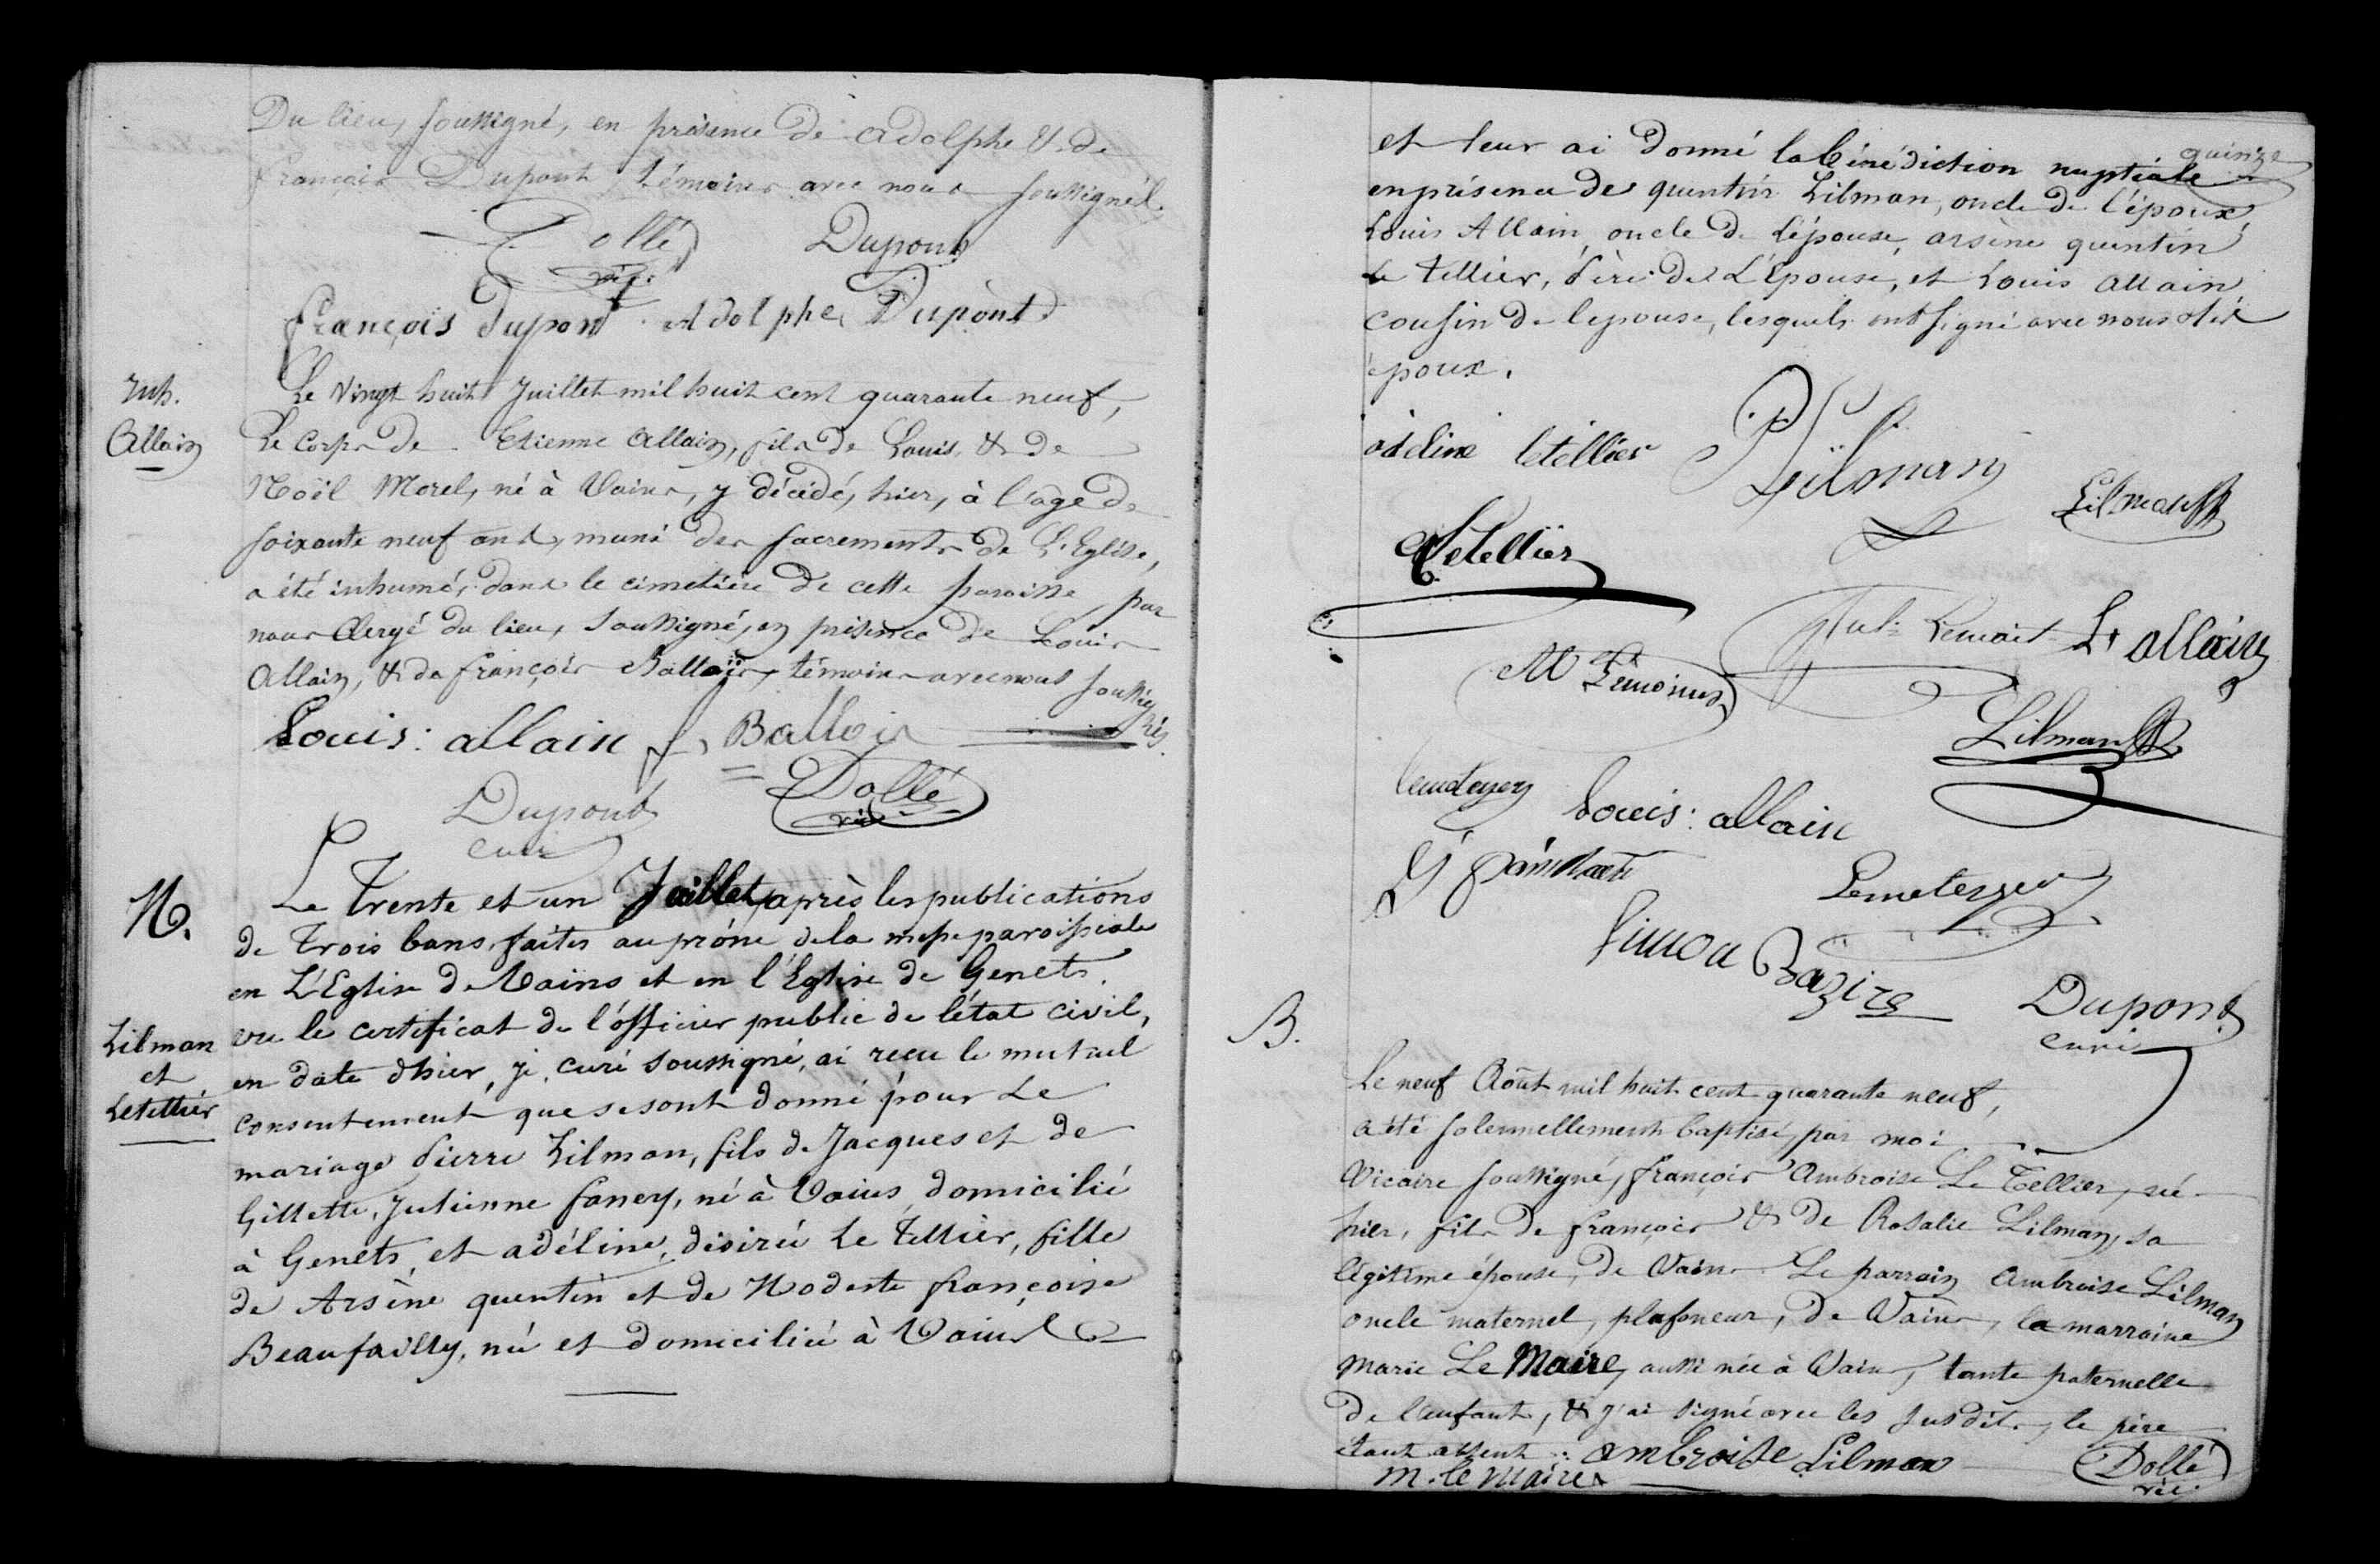 Du lieu, soussigné, en présence de Adolphe & de
François Dupont, témoins avec nous soussignés.
Dollé Dupont
vic.
François Dupont Adolphe Dupont
Inh.
Allain
Le vingt huit Juillet mil huit cent quarante neuf,
Le corps de Etienne Allain, fils de Louis & de
Noël Morel, né à Vains, y décédé, hier, à l'age de
soixante neuf ans, muni des sacrements de L'Eglise,
a été inhumé, dans le cimetière de cette paroisse, par
nous Clergé du lieu, soussigné, en présence de Louis
Allain, & de François Ballois, témoins avec nous soussignés.
Louis: allain f. Ballois
Dupont Dollé
curé vic
M.
Lilman
et
Letellier
Le Trente et un Juillet, après les publications
de Trois bans, faites au prône de la messe paroissiale
en L'Eglise de Vains et en l'Eglise de Genets.
vu le certificat de l'officier public de l'état civil,
en date d'hier, je, curé soussigné, ai reçu le mutuel
consentement que se sont donné pour Le
mariage Pierre Lilman, fils de Jacques et de
Gillette, Julienne fanery, né à Vains, domicilié
à Genets, et adéline, désirée Le Tellier, fille
de Arsène quentin et de Modeste françoise
Beaufailly, née et domiciliée à Vains
quinze
et leur ai Donné la bénédiction nuptiale
en présence de quentin Lilman, oncle de l'époux,
Louis Allain, oncle de l'épouse, arsène quentin
Le Tellier, Père de L'Epouse, et Louis Allain
cousin de lepouse, lesquels ont signé avec nous et les
époux.
adeline letellier P Lilman
Lilman
Letellier
Lemoine L allain
M Lemoine
Lilman
Louis: allain
Lemetayer
Simon Bazire
Dupont
curé
B.
Le neuf Août mil huit cent quarante neuf,
a été solennellement baptisé, par moi
Vicaire soussigné, François Ambroise Le Tellier, né
hier, fils de François & de Rosalie Lilman, sa
légitime épouse, de Vains. Le parrain Ambroise Lilman
oncle maternel, plafoneur, de Vains, la marraine
Marie Le Maire, aussi née à Vains, tante paternelle
de l'enfant, & j'ai signé avec les susdits, le père
étant absent. ambroise Lilman Dollé
m. le maire vic.